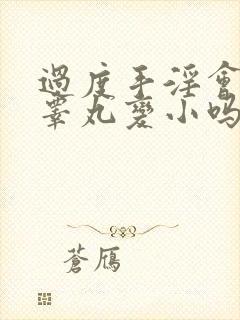 過度手淫會
睪丸變小吗
蒼雁